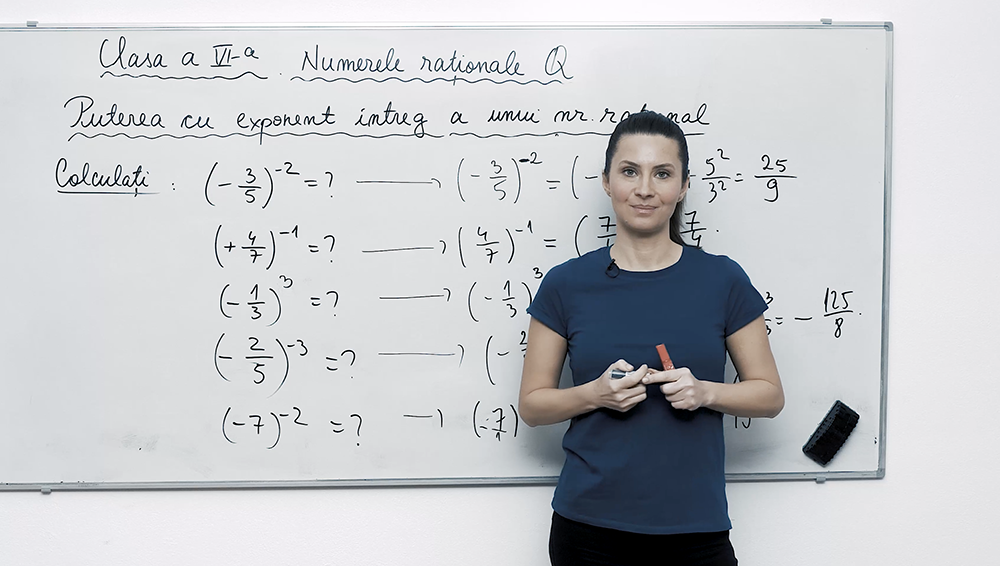 Clasa a VI-a. Numerele raționale Q
Puterea cu exponent întreg a unui nr. rațional
Calculați : (-3/5)^-2 = ? → (-3/5)^-2 = (- 5^2/3^2 = 25/9
(+4/7)^-1 = ? → (4/7)^-1 = (7 7/4.
(-1/3)^3 = ? → (-1/3)^3
(-2/5)^-3 = ? → (-2 = -125/8.
(-7)^-2 = ? → (-7/1)